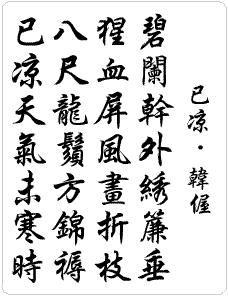 已涼·韓偓
碧闌幹外綉簾垂
猩血屏風畫折枝
八尺龍鬚方錦褥
已涼天氣未寒時